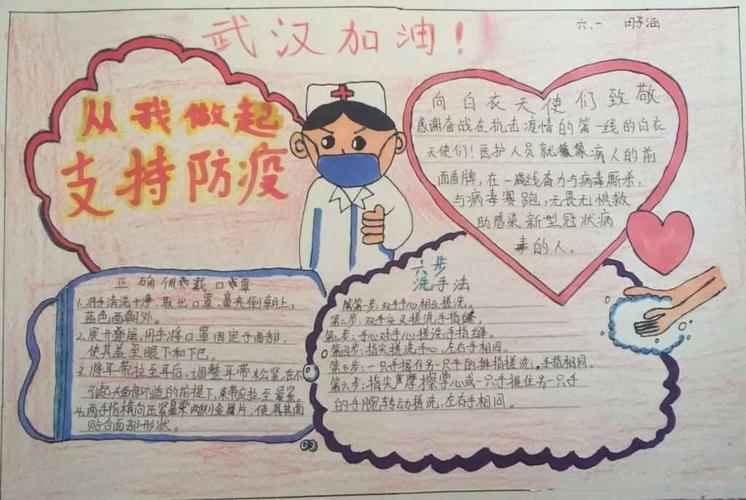 武汉加油！
六.一 田子涵
从我做起
支持防疫
向白衣天使们致敬
感谢奋战在抗击疫情的第一线的白衣
天使们！医护人员就像 病人的前
面盾牌，在一线奋力与病毒厮杀，
与病毒赛跑，无畏无惧救
助感染新型冠状病
毒的人。
正确佩戴口罩
1.将手清洗干净，取出口罩，鼻夹侧朝上，
蓝色面朝外。
2.展开叠层，用手将口罩固定于面部，
使其盖至眼下和下巴。
3.将耳带拉至耳后，调整耳带松紧，在不
引起 的前提下，束带应拉至最紧。
4.两手指横向压紧鼻梁 金属片，使其其面
贴合面部形状。
六步
洗手法
第一步：双手心相互搓洗。
第二步：双手交叉搓洗手指缝。
第三步：手心对手心搓洗手指缝。
第四步：指尖搓洗手心，左右手相同。
第五步：一只手握住另一只手的拇指搓洗，手指相同。
第六步：指尖 摩擦掌心或一只手握住另一只手
的手腕转动搓洗，左右手相同。